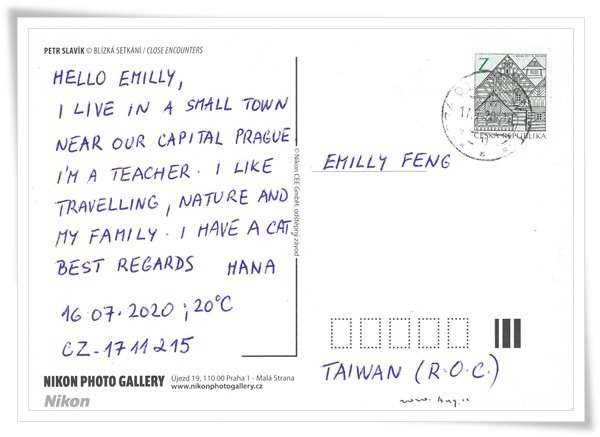 PETR SLAVÍK © BLÍZKÁ SETKÁNÍ / CLOSE ENCOUNTERS
HELLO EMILLY,
I LIVE IN A SMALL TOWN
NEAR OUR CAPITAL PRAGUE.
I'M A TEACHER. I LIKE
TRAVELLING, NATURE AND
MY FAMILY. I HAVE A CAT.
BEST REGARDS HANA
16.07.2020 ; 20°C
CZ-1711215
NIKON PHOTO GALLERY
Újezd 19, 110 00 Praha 1 - Malá Strana
www.nikonphotogallery.cz
Nikon
© Nikon CEE GmbH, odštěpný závod
Z
ČESKÁ REPUBLIKA
17.
EMILLY FENG
TAIWAN (R.O.C.)
2020. Aug.